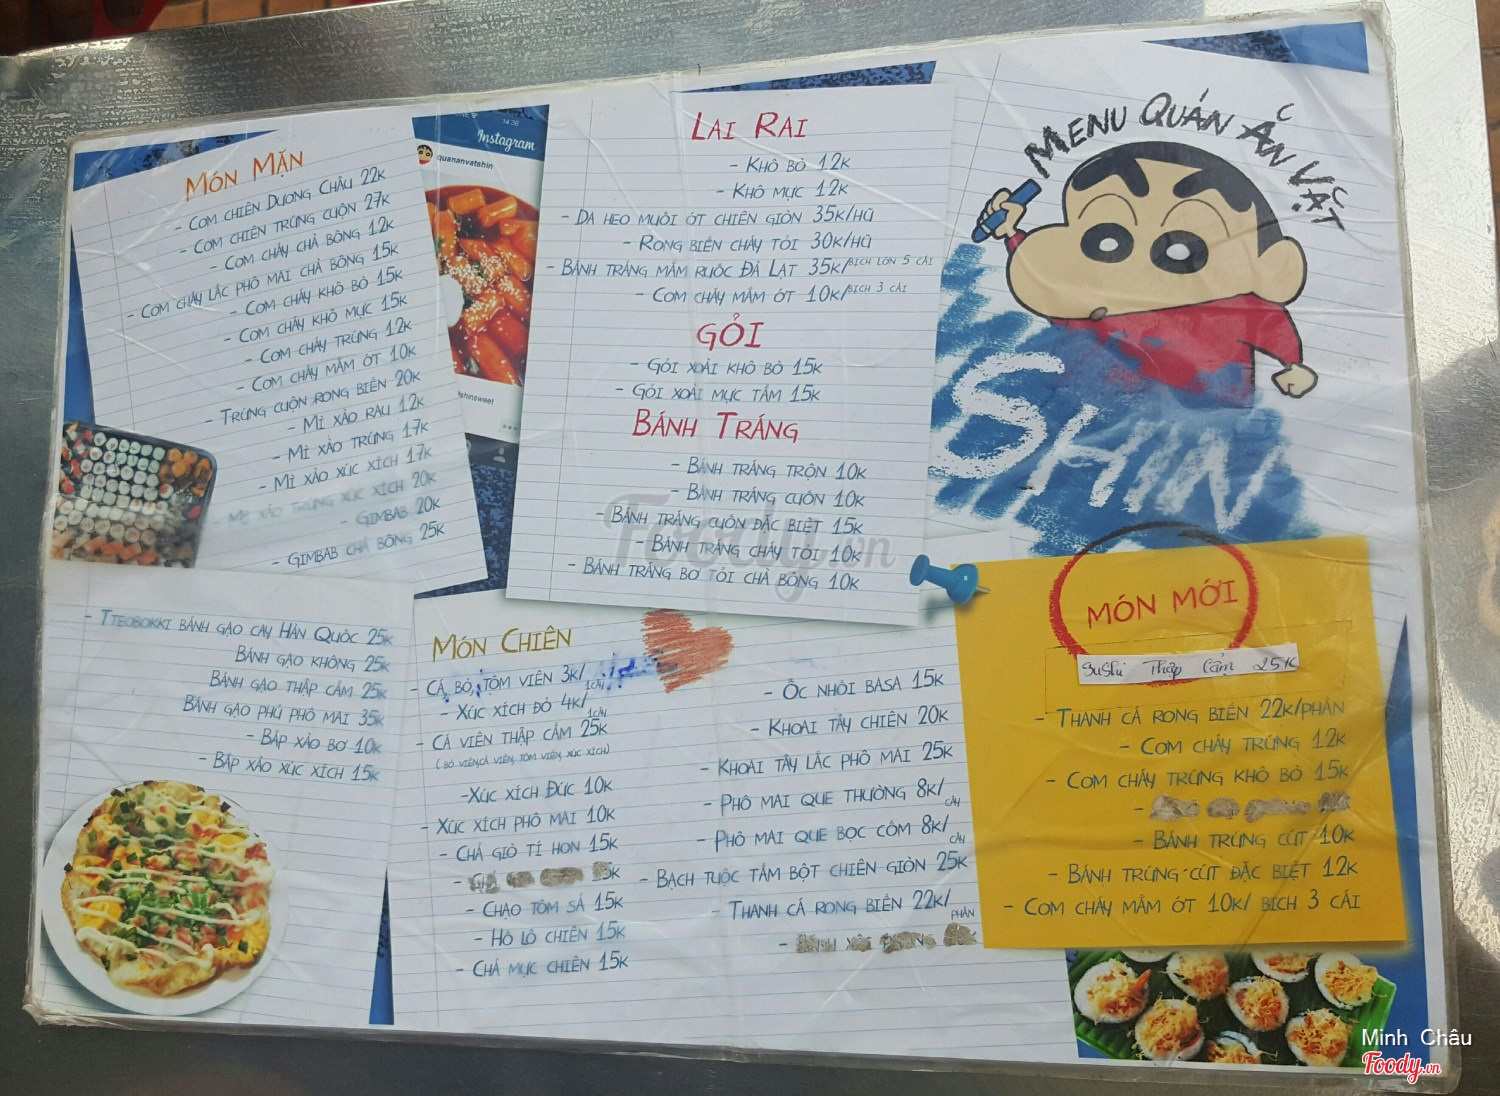 MÓN MẶN
- CƠM CHIÊN DƯƠNG CHÂU 22K
- CƠM CHIÊN TRỨNG CUỘN 27K
- CƠM CHÁY CHÀ BÔNG 12K
- CƠM CHÁY LẮC PHÔ MAI CHÀ BÔNG 15K
- CƠM CHÁY KHÔ BÒ 15K
- CƠM CHÁY KHÔ MỰC 15K
- CƠM CHÁY TRỨNG 12K
- CƠM CHÁY MẮM ỚT 10K
- TRỨNG CUỘN RONG BIỂN 20K
- MÌ XÀO RAU 12K
- MÌ XÀO TRỨNG 17K
- MÌ XÀO XÚC XÍCH 17K
- MÌ XÀO TRỨNG XÚC XÍCH 20K
- GIMBAB 20K
- GIMBAB CHÀ BÔNG 25K
- TTEOBOKKI BÁNH GẠO CAY HÀN QUỐC 25K
BÁNH GẠO KHÔNG 25K
BÁNH GẠO THẬP CẨM 25K
BÁNH GẠO PHỦ PHÔ MAI 35K
- BẮP XÀO BƠ 10K
- BẮP XÀO XÚC XÍCH 15K
14:36
Instagram
quananvatshin
shinsweet
LAI RAI
- KHÔ BÒ 12K
- KHÔ MỰC 12K
- DA HEO MUỐI ỚT CHIÊN GIÒN 35K/HŨ
- RONG BIỂN CHÁY TỎI 30K/HŨ
- BÁNH TRÁNG MẮM RUỐC ĐÀ LẠT 35K/BỊCH LỚN 5 CÁI
- CƠM CHÁY MẮM ỚT 10K/BỊCH 3 CÁI
GỎI
- GỎI XOÀI KHÔ BÒ 15K
- GỎI XOÀI MỰC TẨM 15K
BÁNH TRÁNG
- BÁNH TRÁNG TRỘN 10K
- BÁNH TRÁNG CUỘN 10K
- BÁNH TRÁNG CUỘN ĐẶC BIỆT 15K
- BÁNH TRÁNG CHÁY TỎI 10K
- BÁNH TRÁNG BƠ TỎI CHÀ BÔNG 10K
Foody.vn
MÓN CHIÊN
- CÁ, BÒ, TÔM VIÊN 3K/1CÂY
- XÚC XÍCH ĐỎ 4K/1CÂY
- CÁ VIÊN THẬP CẨM 25K
(BÒ VIÊN,CÁ VIÊN, TÔM VIÊN, XÚC XÍCH)
-XÚC XÍCH ĐỨC 10K
- XÚC XÍCH PHÔ MAI 10K
- CHẢ GIÒ TÍ HON 15K
- CHẠO TÔM SẢ 15K
- HỒ LÔ CHIÊN 15K
- CHẢ MỰC CHIÊN 15K
- ỐC NHỒI BASA 15K
- KHOAI TÂY CHIÊN 20K
- KHOAI TÂY LẮC PHÔ MAI 25K
- PHÔ MAI QUE THƯỜNG 8K/CÂY
- PHÔ MAI QUE BỌC CỐM 8K/CÂY
- BẠCH TUỘC TẨM BỘT CHIÊN GIÒN 25K
- THANH CÁ RONG BIỂN 22K/PHẦN
MENU QUÁN ĂN VẶT
SHIN
MÓN MỚI
Sushi Thập Cẩm 25K
- THANH CÁ RONG BIỂN 22K/PHẦN
- CƠM CHÁY TRỨNG 12K
- CƠM CHÁY TRỨNG KHÔ BÒ 15K
- BÁNH TRỨNG CÚT 10K
- BÁNH TRỨNG CÚT ĐẶC BIỆT 12K
- CƠM CHÁY MẮM ỚT 10K/ BỊCH 3 CÁI
Minh Châu
Foody.vn